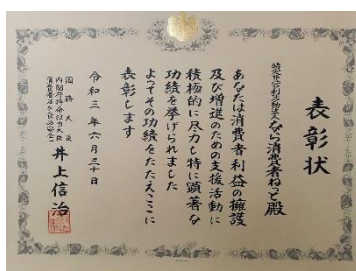 表彰状
特定非営利活動法人なら消費者ねっと殿
あなたは消費者利益の擁護
及び増進のための支援活動に
積極的に尽力し特に顕著な
功績を挙げられました
よってその功績をたたえここに
表彰します
令和三年六月三十日
国務大臣
内閣府特命担当大臣
井上信治